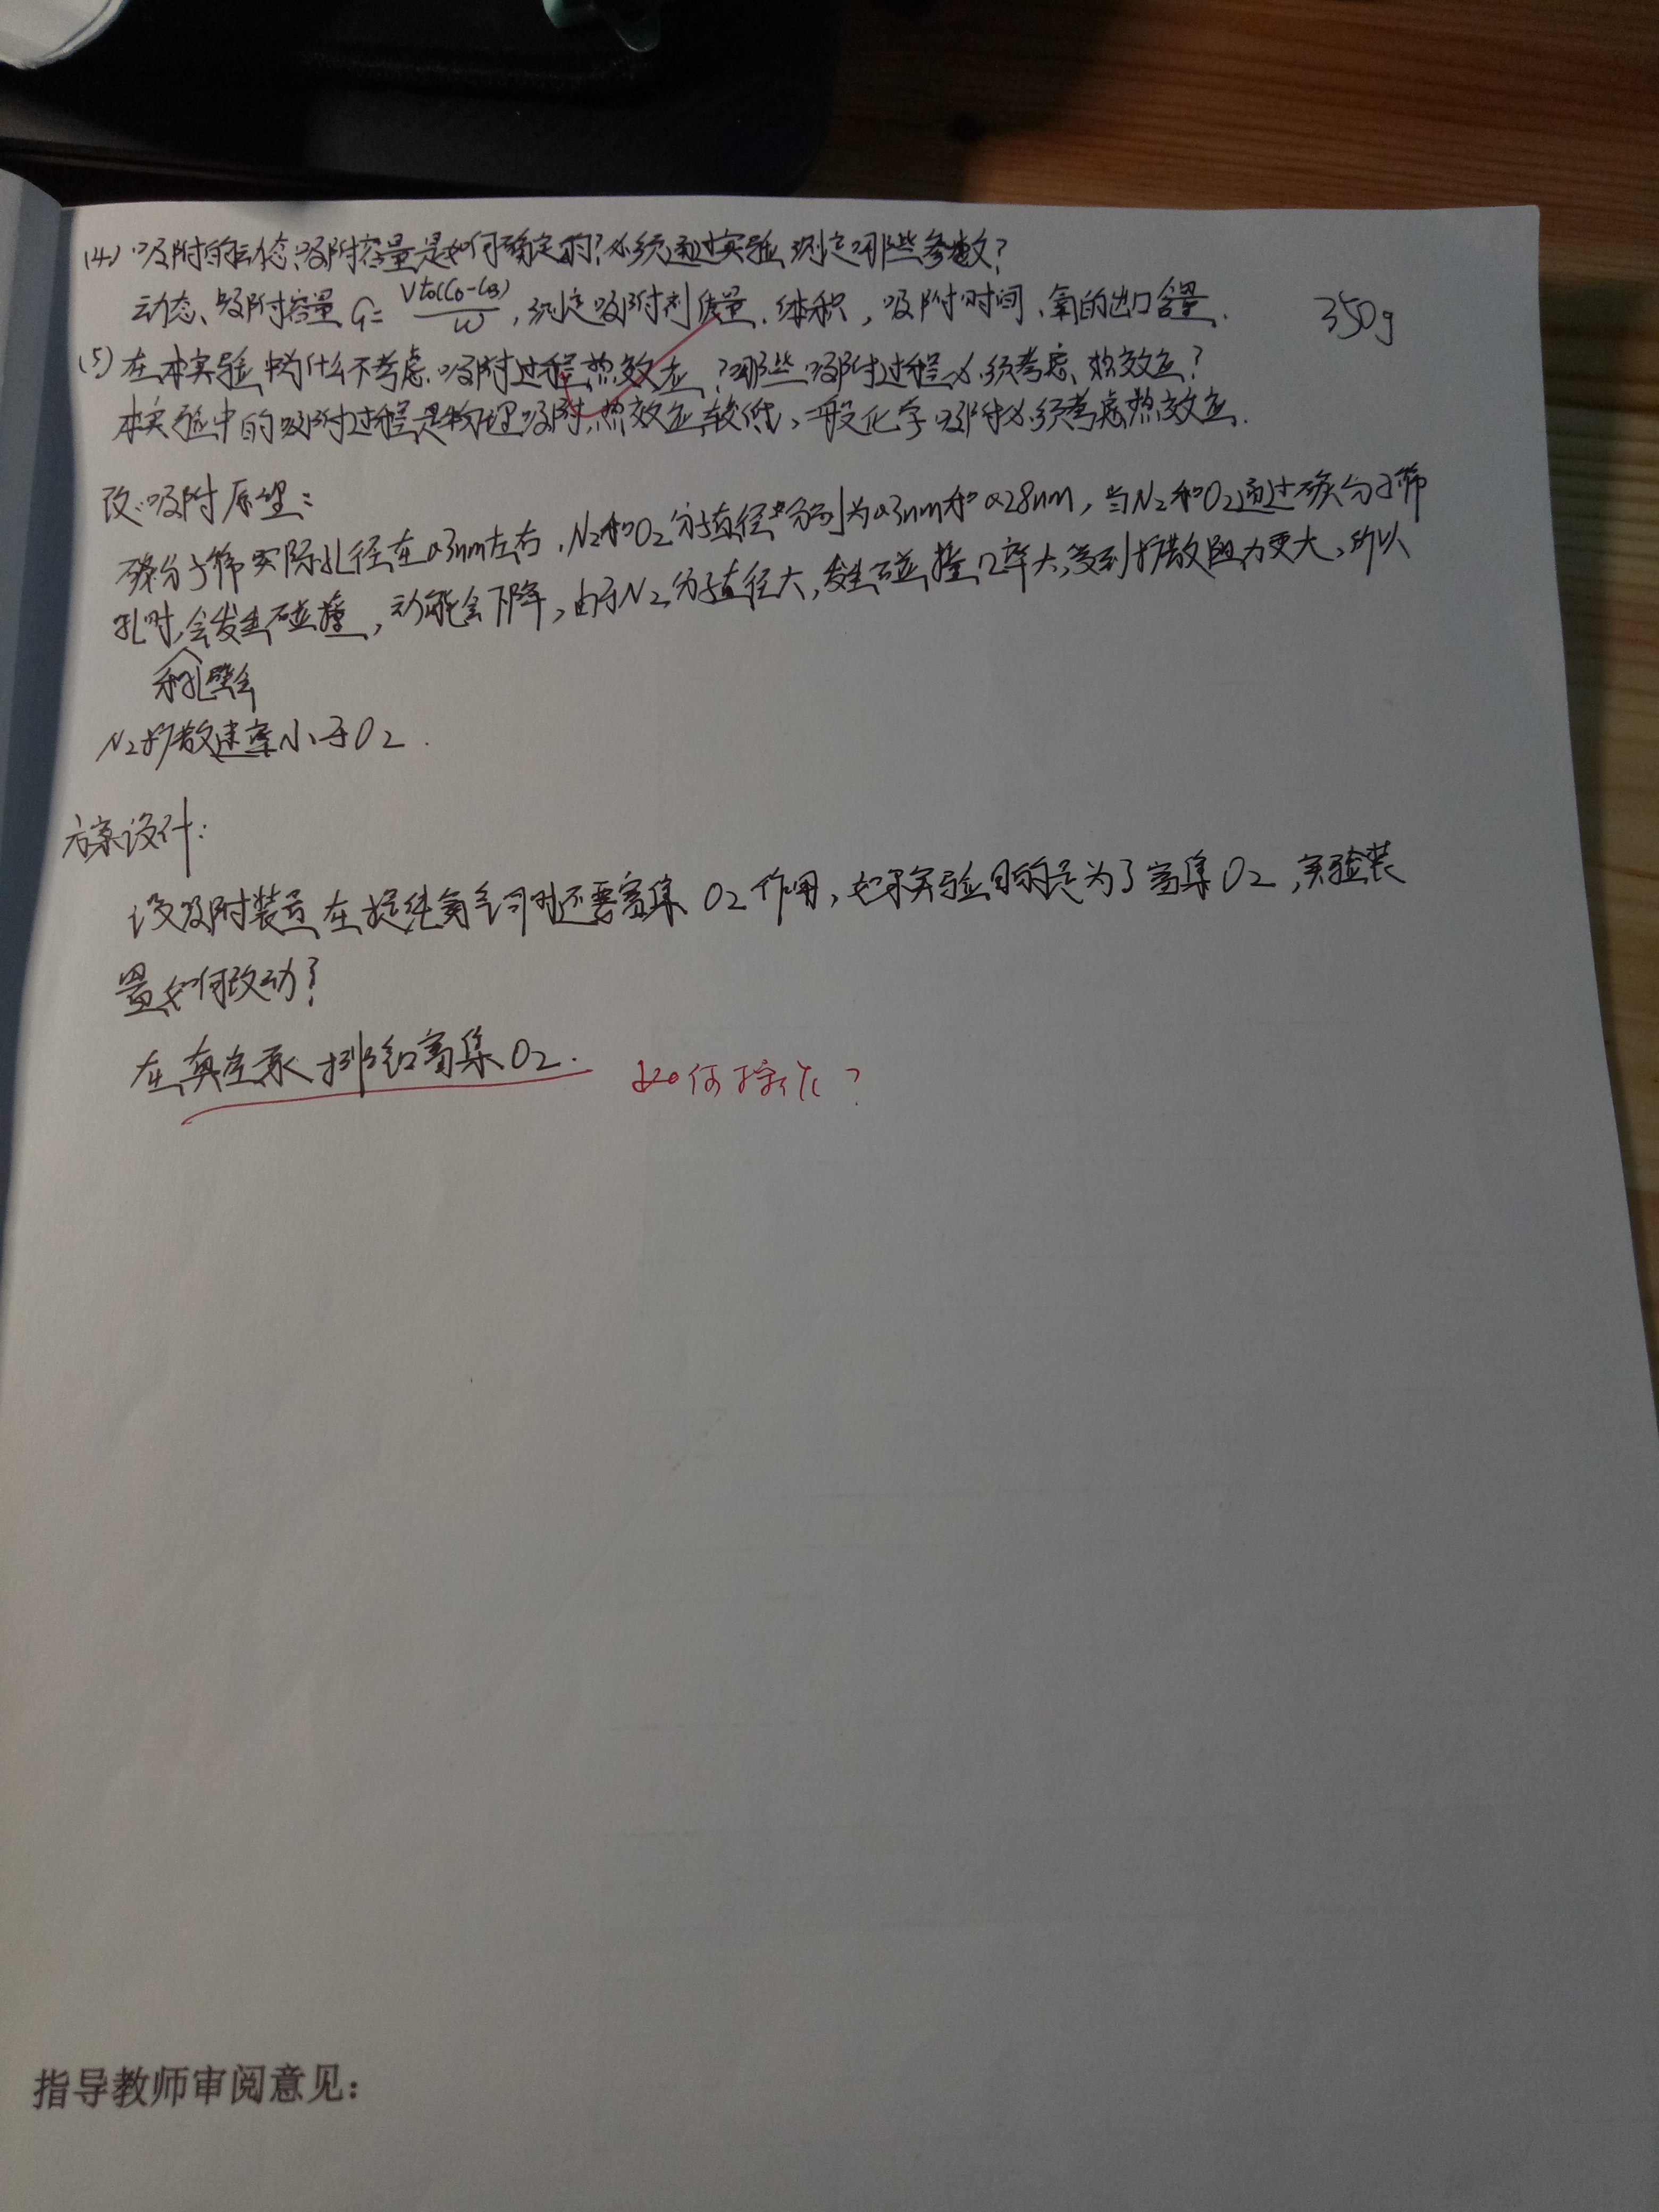 (4) 吸附的动态吸附容量是如何确定的?必须通过实验测定哪些参数?
动态吸附容量 G = V t₀(C₀-C_B) / W ,测定吸附剂质量、体积,吸附时间、氧的出口含量. 350g
(5) 在本实验中为什么不考虑吸附过程热效应?哪些吸附过程必须考虑热效应?
本实验中的吸附过程是物理吸附,热效应较低,一般化学吸附必须考虑热效应.
改:吸附原理:
碳分子筛实际孔径在0.3nm左右.N₂和O₂分子直径分别为0.3nm和0.28nm,当N₂和O₂通过碳分子筛
孔时,会发生碰撞,动能会下降,由于N₂分子直径大,发生碰撞几率大,受到扩散阻力更大,所以
和孔壁会
N₂扩散速率小于O₂.
方案设计:
设吸附装置在提纯氮气同时还要富集O₂作用,如果实验目的是为了富集O₂,实验装
置如何改动?
在真空泵排气口富集O₂. 如何操作?
指导教师审阅意见: